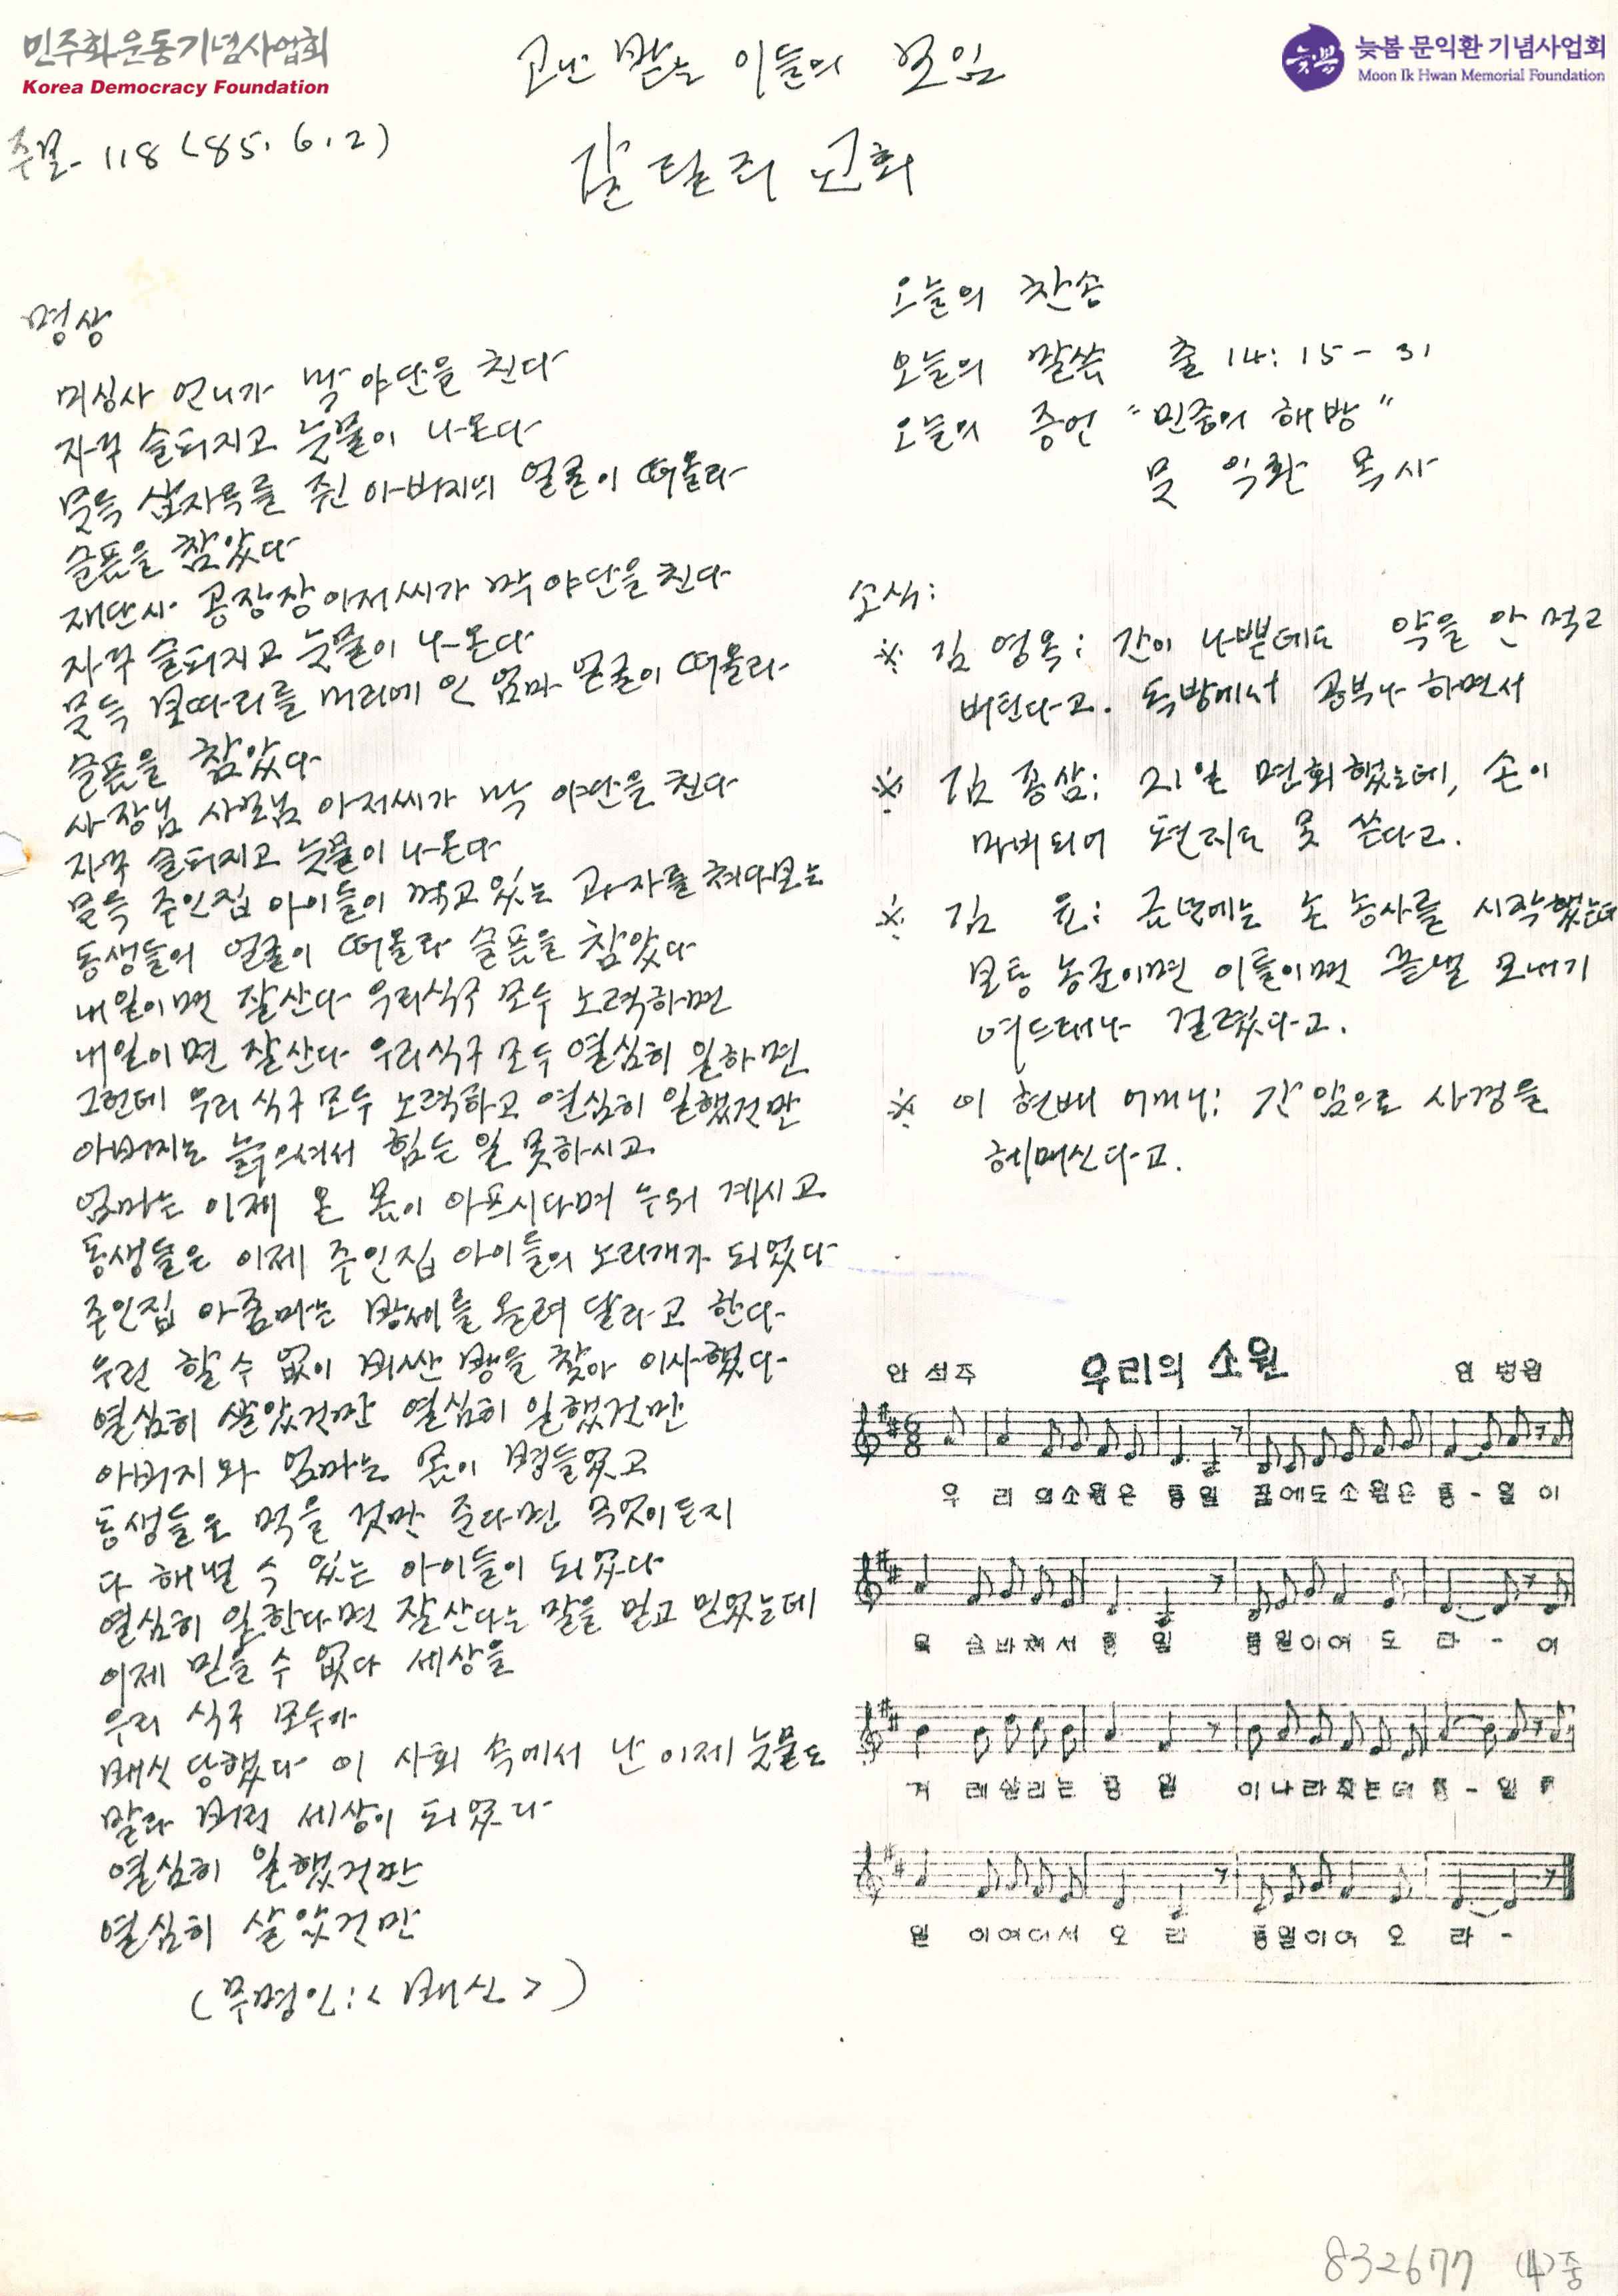 민주화운동기념사업회
Korea Democracy Foundation
늦봄
늦봄 문익환 기념사업회
Moon Ik Hwan Memorial Foundation
고난 받는 이들의 모임
주보 118 (85. 6. 2)
갈릴리 교회
명상
미싱사 언니가 막 야단을 친다
자꾸 슬퍼지고 눈물이 나온다
문득 삽자루를 쥔 아버지의 얼굴이 떠올라
슬픔을 참았다
재단사 공장장 아저씨가 막 야단을 친다
자꾸 슬퍼지고 눈물이 나온다
문득 보따리를 머리에 인 엄마 얼굴이 떠올라
슬픔을 참았다
사장님 사모님 아저씨가 막 야단을 친다
자꾸 슬퍼지고 눈물이 나온다
문득 주인집 아이들이 먹고있는 과자를 쳐다보는
동생들의 얼굴이 떠올라 슬픔을 참았다
내일이면 잘산다 우리식구 모두 노력하면
내일이면 잘산다 우리식구 모두 열심히 일하면
그런데 우리 식구 모두 노력하고 열심히 일했건만
아버지는 늙으셔서 힘든 일 못하시고
엄마는 이제 온 몸이 아프시다며 누워 계시고
동생들은 이제 주인집 아이들의 노리개가 되었다
주인집 아줌마는 방세를 올려 달라고 한다
우린 할 수 없이 비싼 방을 찾아 이사했다
열심히 살았건만 열심히 일했건만
아버지와 엄마는 몸이 병들었고
동생들은 먹을 것만 준다면 무엇이든지
다 해낼 수 있는 아이들이 되었다
열심히 일한다면 잘산다는 말을 믿고 믿었는데
이제 믿을 수 없다 세상을
우리 식구 모두가
배신 당했다 이 사회 속에서 난 이제 눈물도
말라 버린 세상이 되었다
열심히 일했건만
열심히 살았건만
(무명인: <배신>)
오늘의 찬송
오늘의 말씀 출 14: 15 - 31
오늘의 증언 "민중의 해방"
문 익환 목사
소식:
※ 김 영옥: 간이 나쁜데도 약을 안 먹고
버틴다고. 독방에서 공부나 하면서
※ 김 종삼: 21일 면회했는데, 손이
마비되어 편지도 못 쓴다고.
※ 김 윤: 금년에는 논 농사를 시작했는데
보통 농군이면 이틀이면 끝낼 모내기
여드레나 걸렸다고.
※ 이 현배 어머니: 간암으로 사경을
헤매신다고.
안 석주 우리의 소원 안 병원
우 리 의소원은 통일 꿈에도소원은 통 - 일 이
목 숨바쳐서 통 일 통일이여 오 라 - 이
겨 레살리는 통 일 이나라찾는데 통 - 일 통
일 이여어서 오 라 통일이여 오 라 -
832677 (4)중